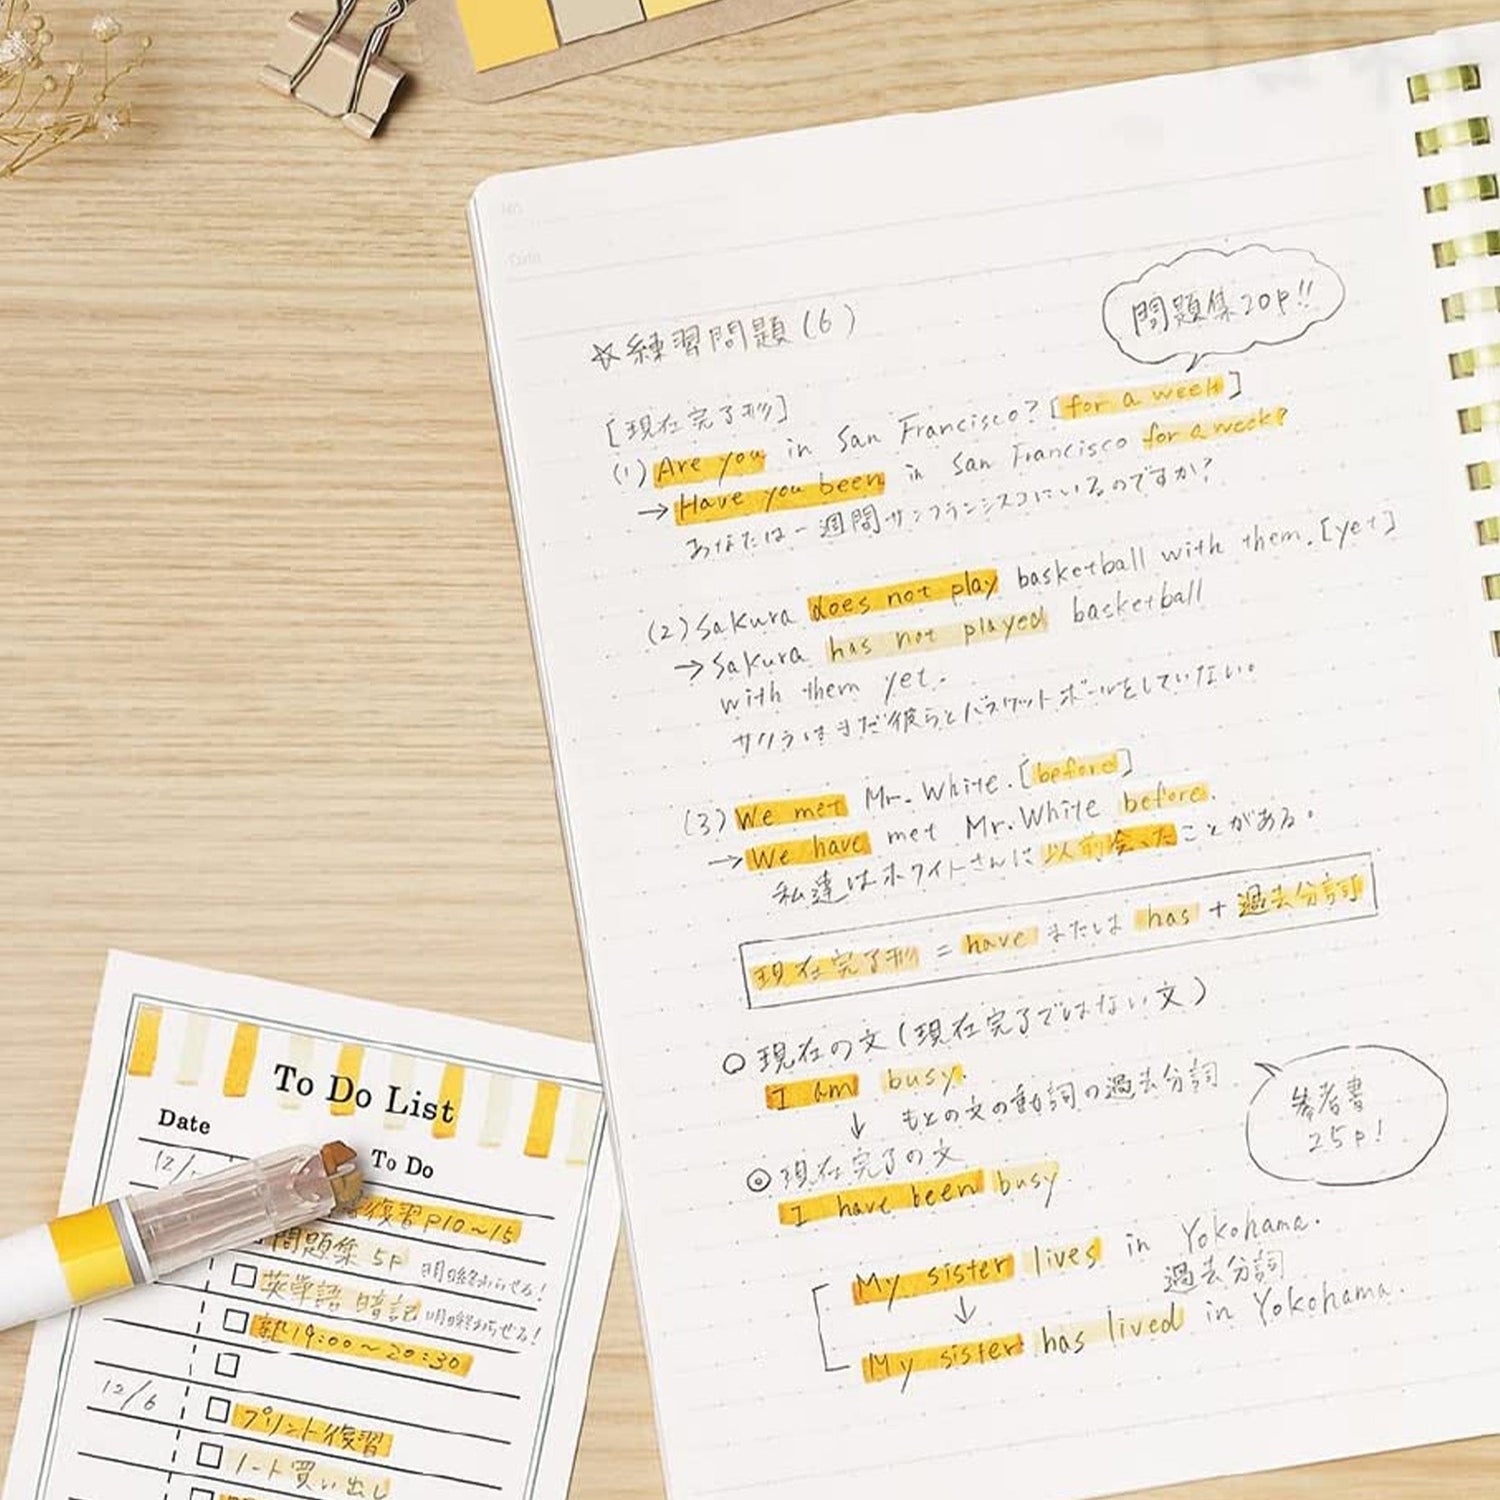 ☆練習問題(6)
問題集20P!!
[現在完了形]
(1) Are you in San Francisco? [for a week]
→ Have you been in San Francisco for a week?
あなたは一週間サンフランシスコにいるのですか?
(2) Sakura does not play basketball with them. [yet]
→ Sakura has not played basketball
with them yet.
サクラはまだ彼らとバスケットボールをしていない。
(3) We met Mr. White. [before]
→ We have met Mr. White before.
私達はホワイトさんに以前会ったことがある。
現在完了形 = have または has + 過去分詞
○ 現在の文(現在完了ではない文)
I am busy.
↓ もとの文の動詞の過去分詞
参考書
25P!
◎ 現在完了の文
I have been busy
My sister lives in Yokohama.
↓ 過去分詞
My sister has lived in Yokohama.
To Do List
Date
To Do
12/
復習P10~15
問題集 5P 明日終わらせる!
□ 英単語 暗記 明日終わらせる!
□ 塾19:00~20:30
□
12/6 □ プリント復習
□ ノート買い出し